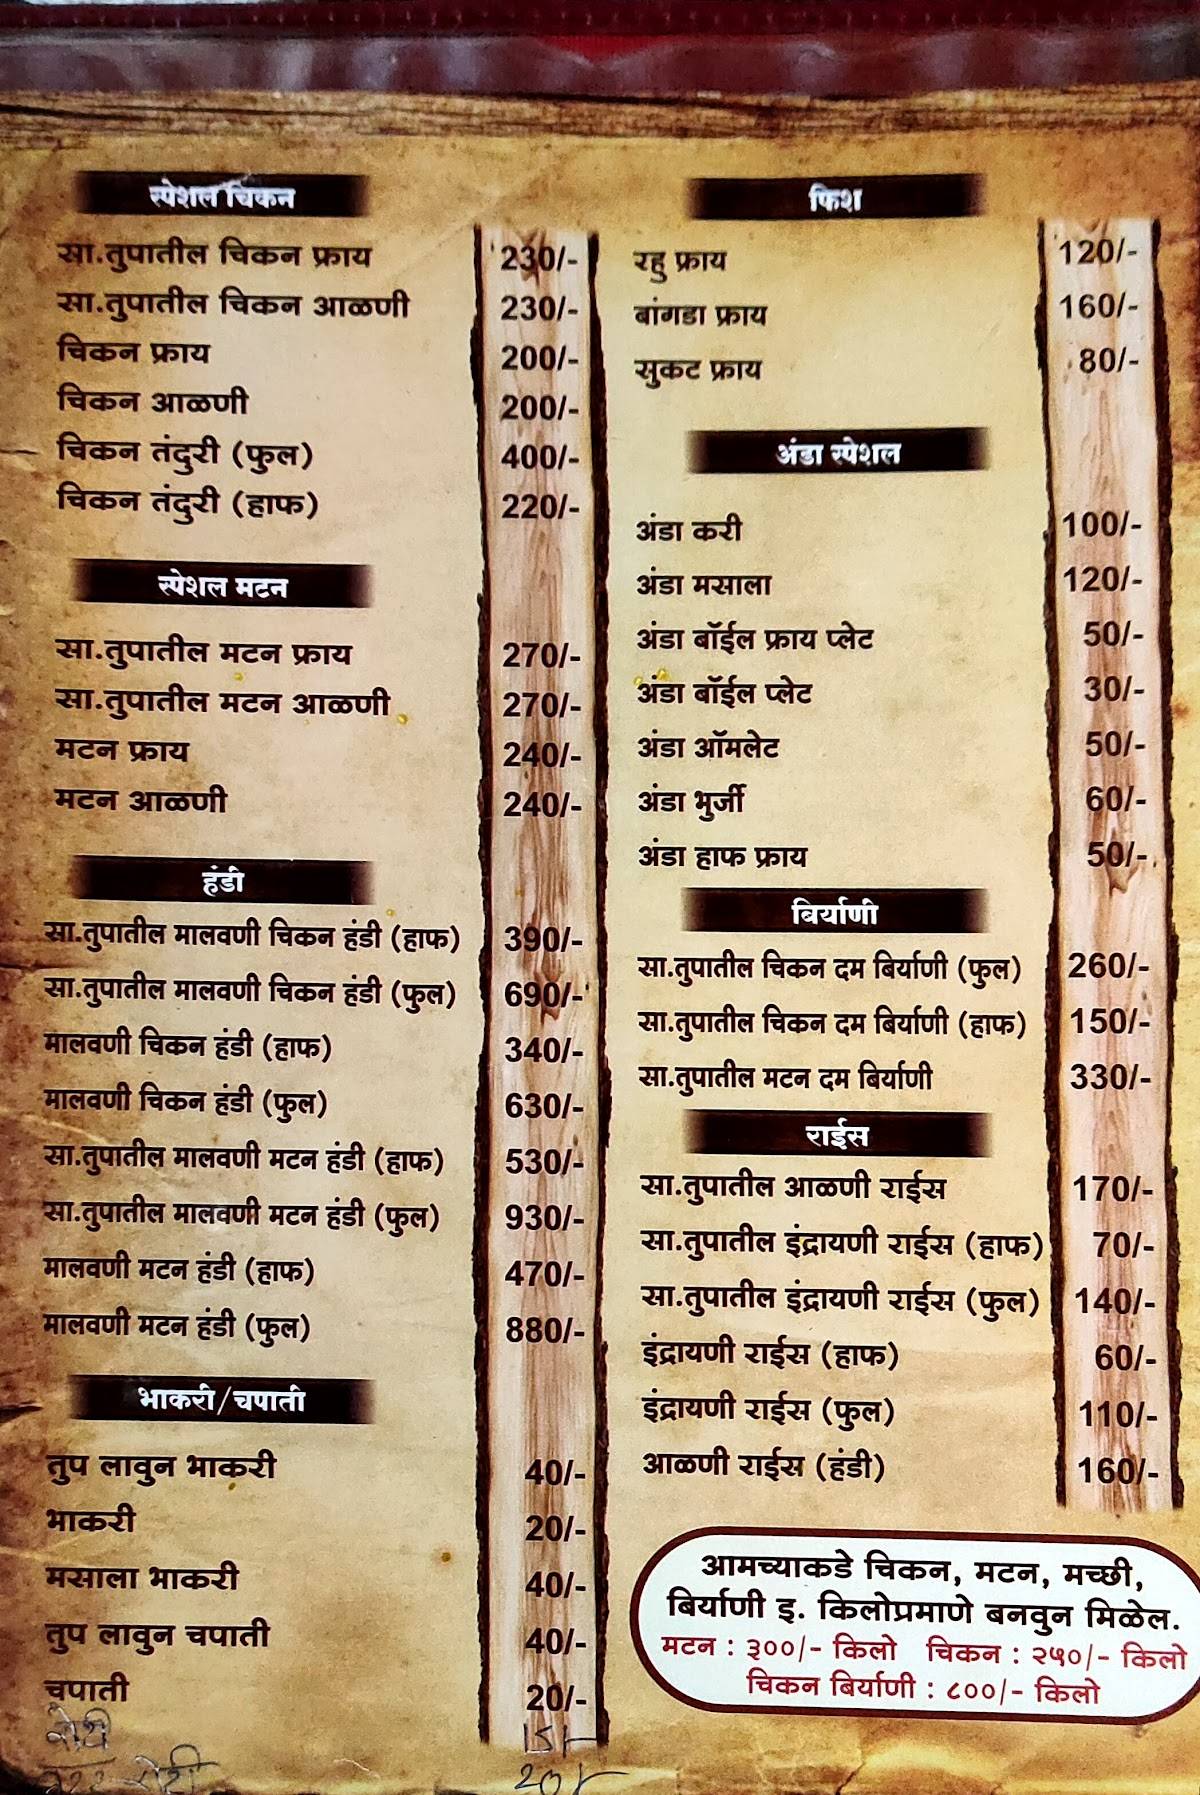 स्पेशल चिकन
सा.तुपातील चिकन फ्राय 230/-
सा.तुपातील चिकन आळणी 230/-
चिकन फ्राय 200/-
चिकन आळणी 200/-
चिकन तंदुरी (फुल) 400/-
चिकन तंदुरी (हाफ) 220/-
स्पेशल मटन
सा.तुपातील मटन फ्राय 270/-
सा.तुपातील मटन आळणी 270/-
मटन फ्राय 240/-
मटन आळणी 240/-
हंडी
सा.तुपातील मालवणी चिकन हंडी (हाफ) 390/-
सा.तुपातील मालवणी चिकन हंडी (फुल) 690/-
मालवणी चिकन हंडी (हाफ) 340/-
मालवणी चिकन हंडी (फुल) 630/-
सा.तुपातील मालवणी मटन हंडी (हाफ) 530/-
सा.तुपातील मालवणी मटन हंडी (फुल) 930/-
मालवणी मटन हंडी (हाफ) 470/-
मालवणी मटन हंडी (फुल) 880/-
भाकरी/चपाती
तुप लावुन भाकरी 40/-
भाकरी 20/-
मसाला भाकरी 40/-
तुप लावुन चपाती 40/-
चपाती 20/-
रोटी 15/-
रोटी 20/-
फिश
रहु फ्राय 120/-
बांगडा फ्राय 160/-
सुकट फ्राय 80/-
अंडा स्पेशल
अंडा करी 100/-
अंडा मसाला 120/-
अंडा बॉईल फ्राय प्लेट 50/-
अंडा बॉईल प्लेट 30/-
अंडा ऑमलेट 50/-
अंडा भुर्जी 60/-
अंडा हाफ फ्राय 50/-
बिर्याणी
सा.तुपातील चिकन दम बिर्याणी (फुल) 260/-
सा.तुपातील चिकन दम बिर्याणी (हाफ) 150/-
सा.तुपातील मटन दम बिर्याणी 330/-
राईस
सा.तुपातील आळणी राईस 170/-
सा.तुपातील इंद्रायणी राईस (हाफ) 70/-
सा.तुपातील इंद्रायणी राईस (फुल) 140/-
इंद्रायणी राईस (हाफ) 60/-
इंद्रायणी राईस (फुल) 110/-
आळणी राईस (हंडी) 160/-
आमच्याकडे चिकन, मटन, मच्छी,
बिर्याणी इ. किलोप्रमाणे बनवुन मिळेल.
मटन : ३००/- किलो चिकन : २५०/- किलो
चिकन बिर्याणी : ८००/- किलो